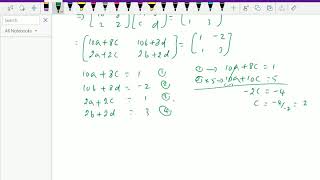 Search
All Notebooks
⇒ [10 8
2 2] [a b
c d] = [1 -2
1 3]
= [10a+8c 10b+8d
2a+2c 2b+2d] = [1 -2
1 3]
10a+8c = 1 ①
10b+8d = -2 ②
2a+2c = 1 ③
2b+2d = 3 ④
① → 10a+8c = 1
③×5 → 10a+10c = 5
-2c = -4
c = -4/-2 = 2